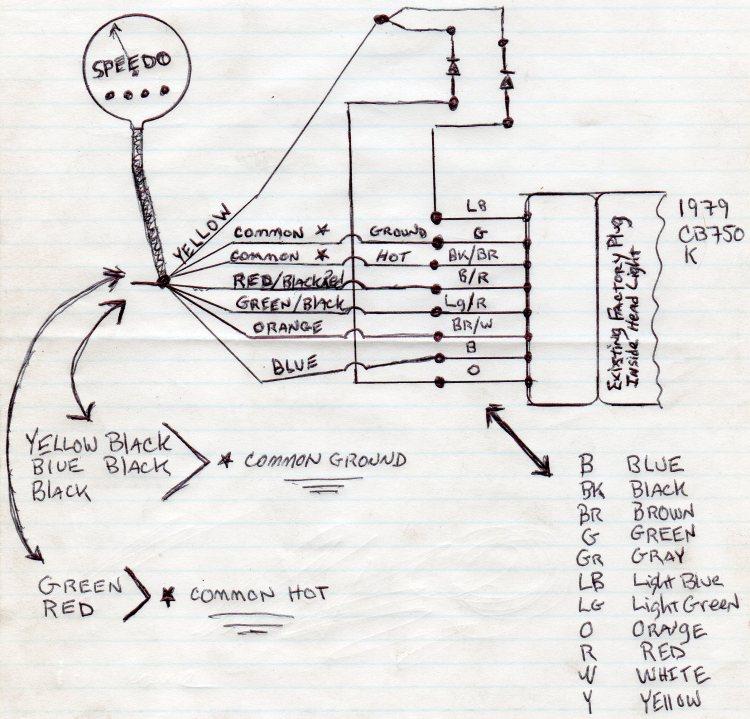 SPEEDO
YELLOW
LB
COMMON * GROUND G
COMMON * HOT BK/BR
RED/Black Red B/R
GREEN/Black Lg/R
ORANGE BR/W
BLUE B
O
Existing Factory Plug
Inside Head Light
1979
CB750
K
YELLOW Black
BLUE Black
Black
* COMMON GROUND
GREEN
RED
* COMMON HOT
B BLUE
BK Black
BR BROWN
G GREEN
GR GRAY
LB Light Blue
LG Light Green
O ORANGE
R RED
W WHITE
Y YEllOW